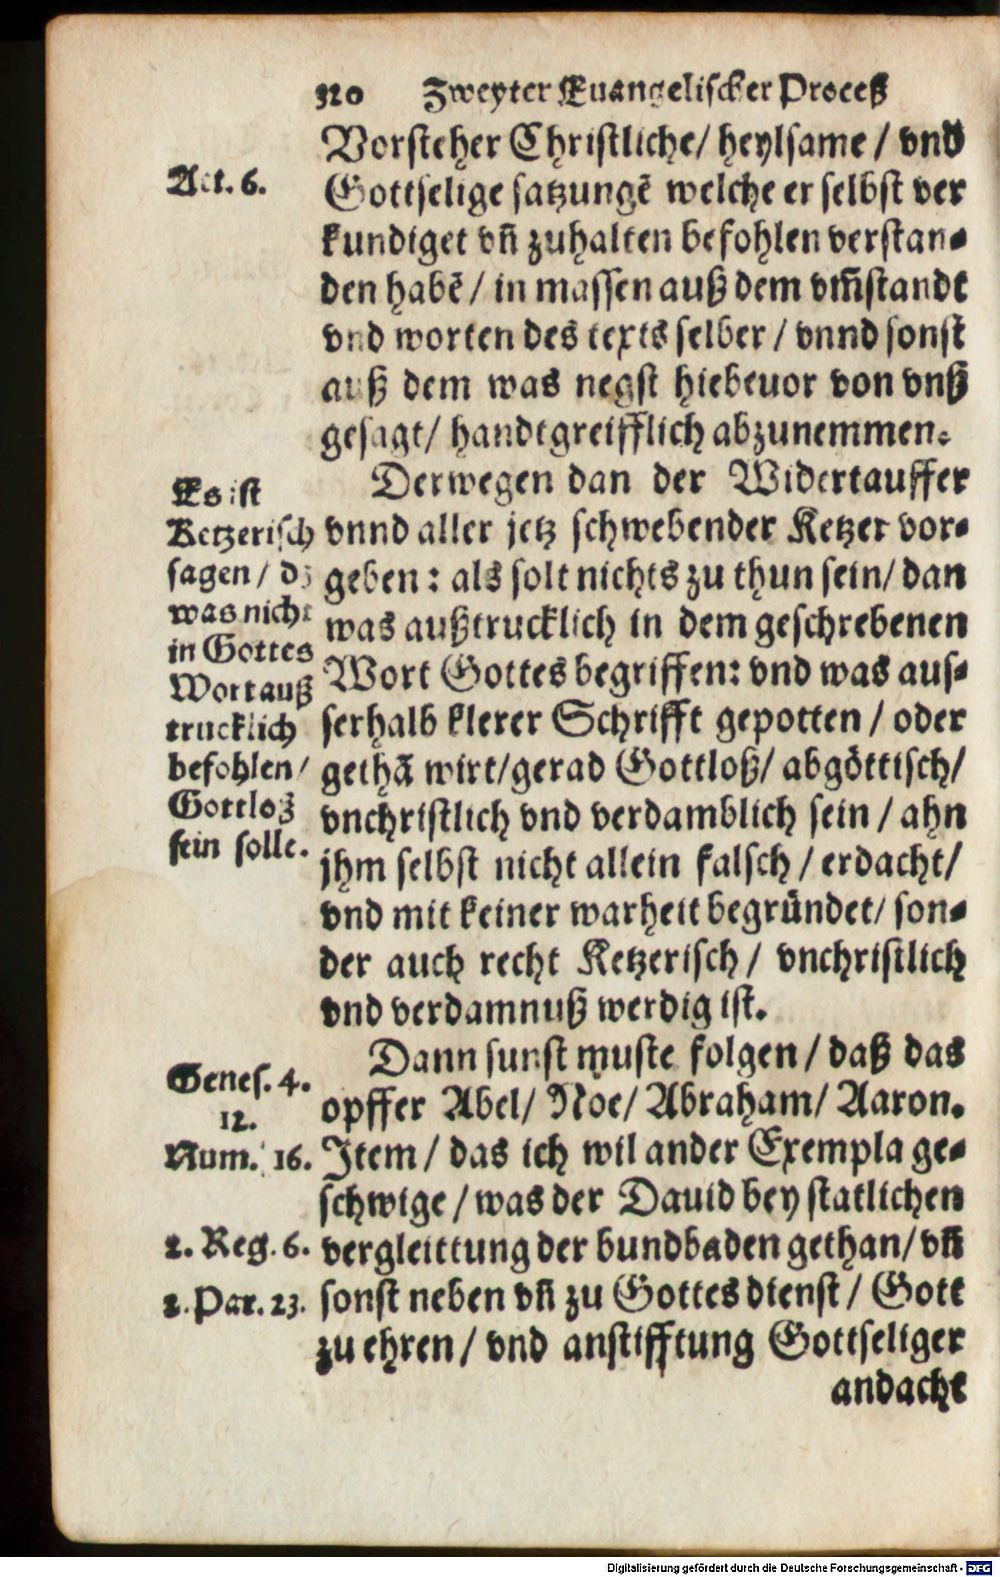 310 Zweyter Euangelischer Proceß
Vorsteher Christliche/ heylsame / vnd
Act. 6.
Gottselige satzungẽ welche er selbst ver
kundiget vñ zuhalten befohlen verstan-
den habẽ / in massen auß dem vm̃standt
vnd worten des texts selber / vnnd sonst
auß dem was negst hiebeuor von vnß
gesagt/ handtgreifflich abzunemmen.
Derwegen dan der Widertauffer
vnnd aller jetz schwebender Ketzer vor-
geben : als solt nichts zu thun sein/ dan
was außtrucklich in dem geschrebenen
Wort Gottes begriffen: vnd was aus-
serhalb klerer Schrifft gepotten / oder
gethã wirt/gerad Gottloß/ abgöttisch/
vnchristlich vnd verdamblich sein / ahn
jhm selbst nicht allein falsch / erdacht/
vnd mit keiner warheit begründet/ son-
der auch recht Ketzerisch / vnchristlich
vnd verdamnuß werdig ist.
Es ist
Ketzerisch
sagen / dz
was nicht
in Gottes
Wort auß
trucklich
befohlen/
Gottloß
sein solle.
Dann sunst muste folgen / daß das
opffer Abel/ Noe/ Abraham/ Aaron.
Item / das ich wil ander Exempla ge-
schwige / was der Dauid bey statlichen
vergleittung der bundbaden gethan/ vñ
sonst neben vñ zu Gottes dienst / Gott
zu ehren / vnd anstifftung Gottseliger
andacht
Genes. 4.
12.
Num. 16.
2. Reg. 6.
2. Par. 23.
Digitalisierung gefördert durch die Deutsche Forschungsgemeinschaft - DFG